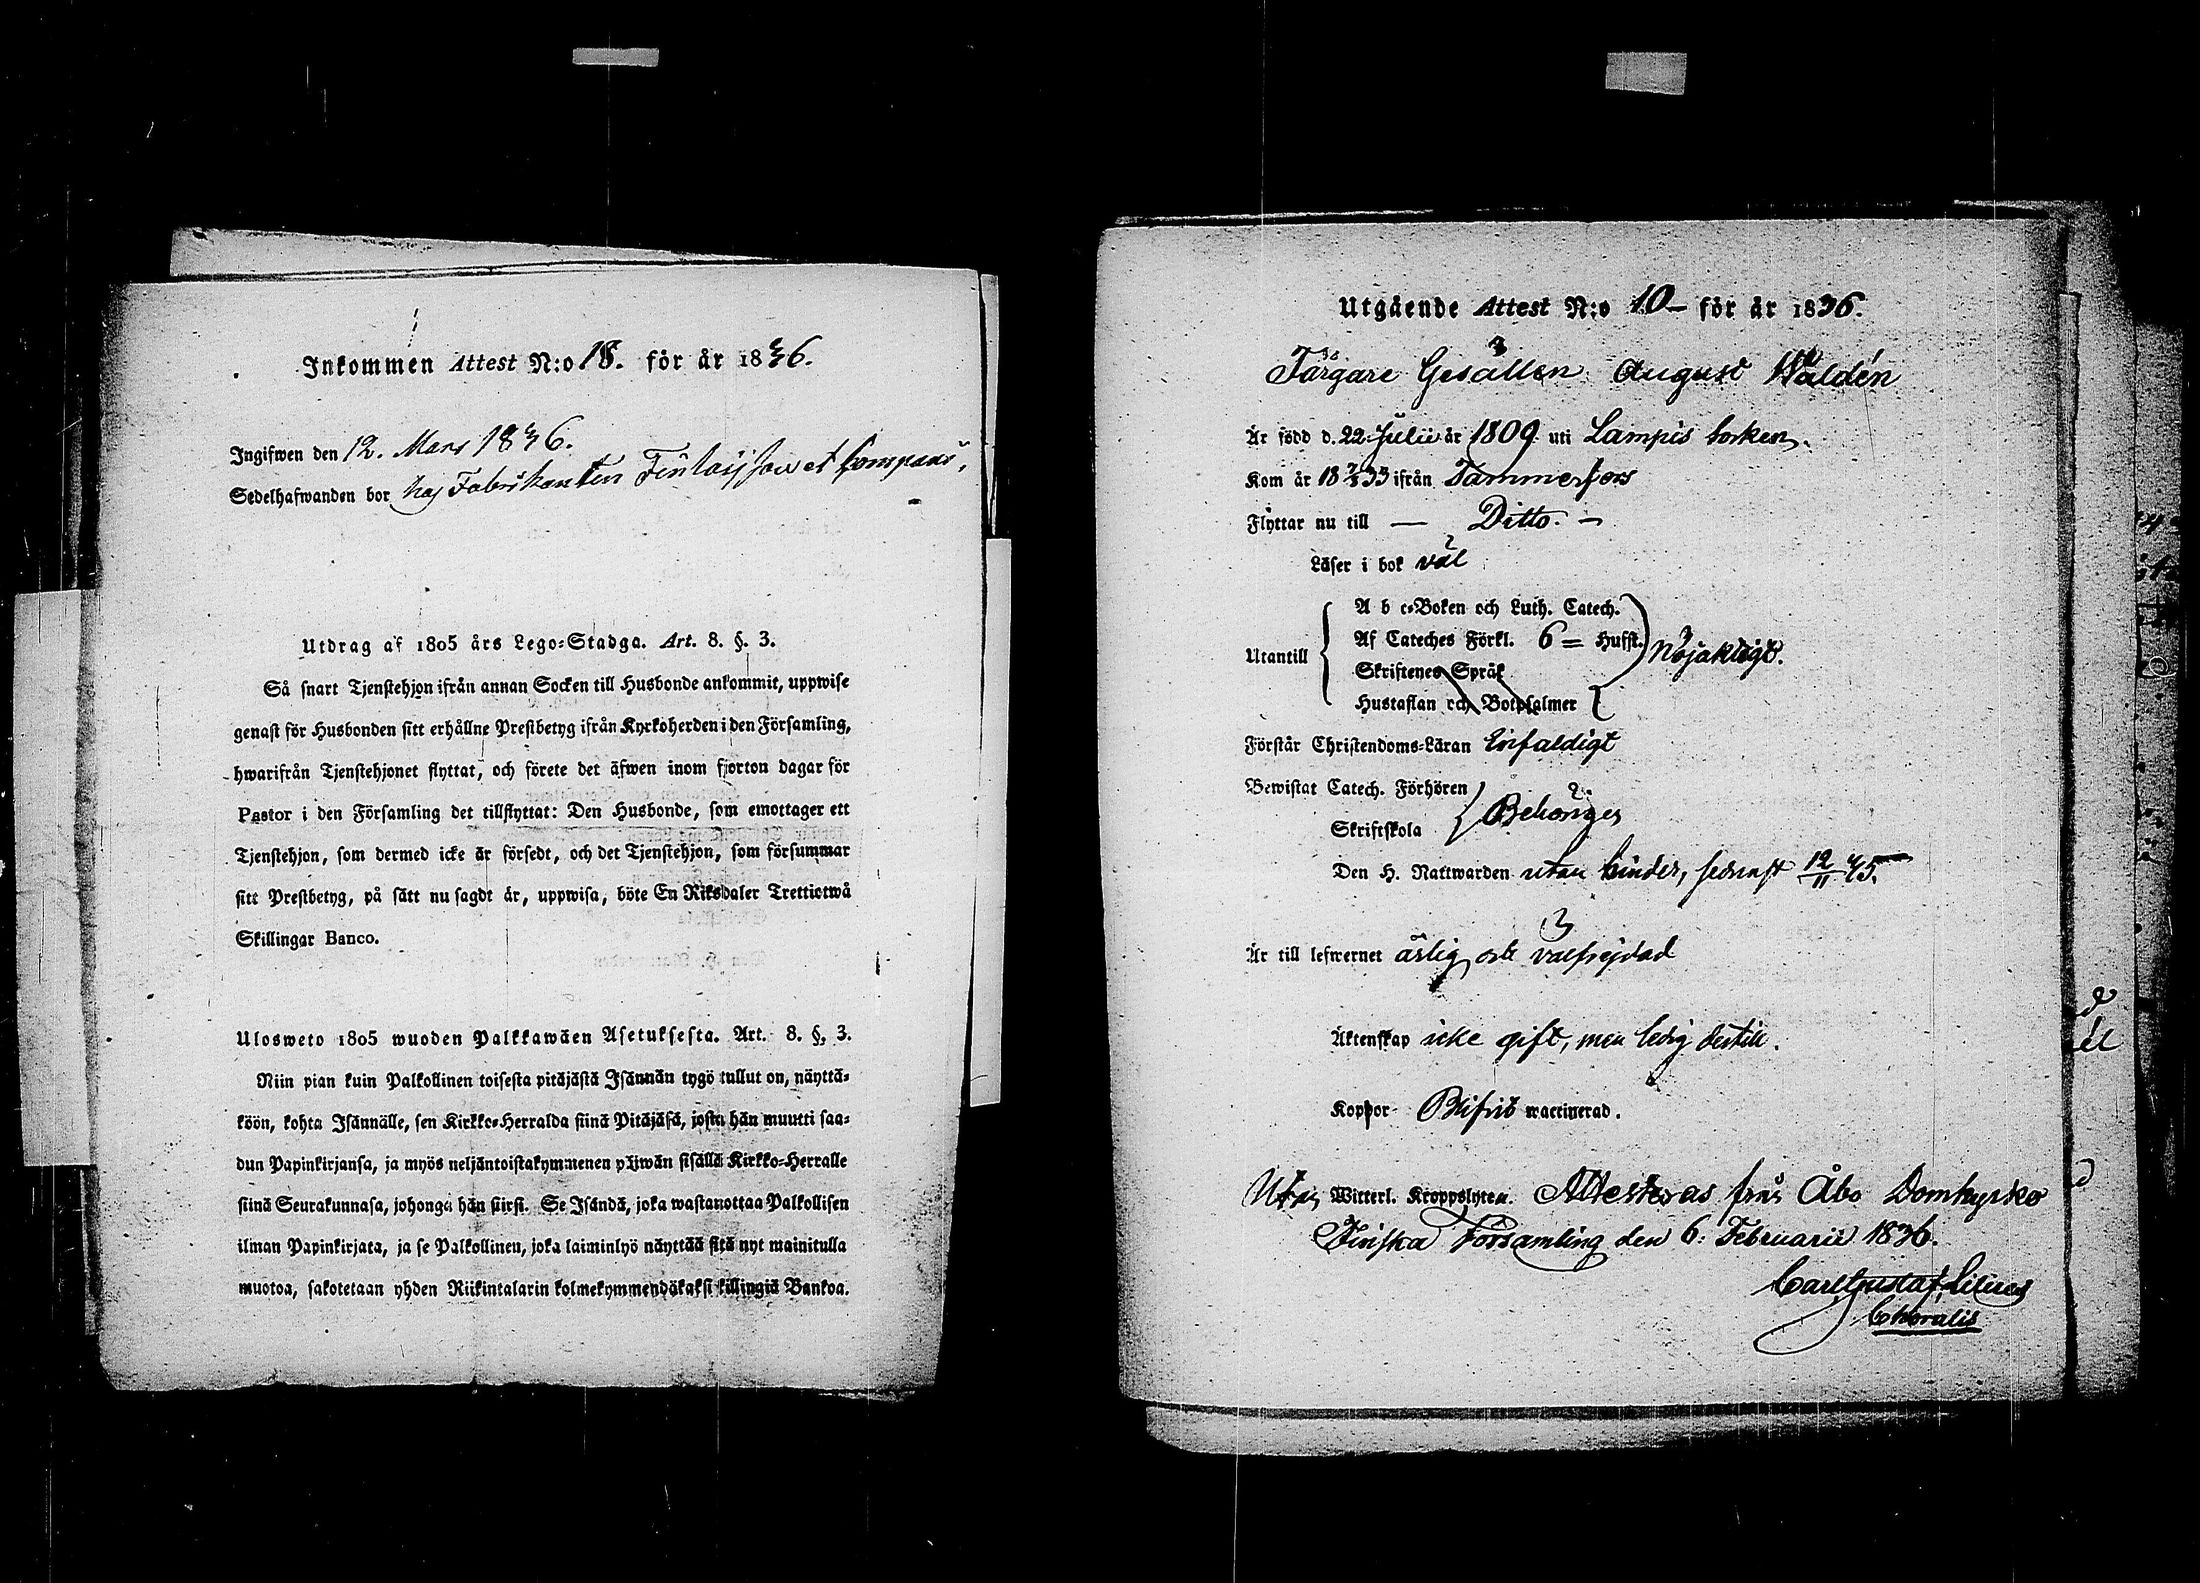 Inkommen Attest N:o 18. för år 1836.
Ingifwen den 12. Mars 1836.
Sedelhafwanden bor hos Fabrikanten Finlaijson et Compani,
Utdrag af 1805 års Lego=Stadga. Art. 8. §. 3.
Så snart Tjenstehjon ifrån annan Socken till Husbonde ankommit, uppwise
genast för Husbonden sitt erhållne Prestbetyg ifrån Kyrkoherden i den Församling,
hwarifrån Tjenstehjonet flyttat, och förete det äfwen inom fjorton dagar för
Pastor i den Församling det tillflyttat: Den Husbonde, som emottager ett
Tjenstehjon, som dermed icke är försedt, och det Tjenstehjon, som försummar
sitt Prestbetyg, på sätt nu sagdt är, uppwisa, böte En Riksdaler Trettiotwå
Skillingar Banco.
Ulosweto 1805 wuoden Palkkawäen Asetuksesta. Art. 8. §. 3.
Niin pian kuin Palkollinen toisesta pitäjästä Isännän tygö tullut on, näyttä=
köön, kohta Isännälle, sen Kirkko=Herralda siinä Pitäjäsä, josta hän muutti saa=
dun Papinkirjansa, ja myös neljäntoistakymmenen päiwän sisällä Kirkko=Herralle
siinä Seurakunnasa, johonga hän siirsi. Se Isändä, joka wastanottaa Palkollisen
ilman Papinkirjata, ja se Palkollinen, joka laiminlyö näyttää sitä nyt mainitulla
muotoa, sakotetaan yhden Riikintalarin kolmekymmendäkaksi killingiä Bankoa.
Utgående Attest N:o 10 för år 1836.
Färgare Gesällen August Waldén
Är född d. 22 Julii år 1809 uti Lampis socken.
Kom år 18 33 ifrån Tammerfors
Flyttar nu till — Ditto. —
Läser i bok väl
A b c=Boken och Luth. Catech.
Af Cateches Förkl. 6 = Hufst.
Utantill Nöjaktigt.
Skriftenes Språk
Hustaflan och Botpsalmer
Förstår Christendoms=Läran Enfaldigt
Bewistat Catech. Förhören
Skriftskola Behörigen
Den H. Nattwarden utan hinder, sednast 12/11 35.
Är till lefwernet ärlig och välfrejdad
Äktenskap icke gift, men ledig dertill.
Koppor Blifvit waccinerad.
Utan Witterl. Kroppslyten. Attesteras från Åbo Domkyrko
Finska Församling den 6. Februarii 1836.
Carl Gustaf